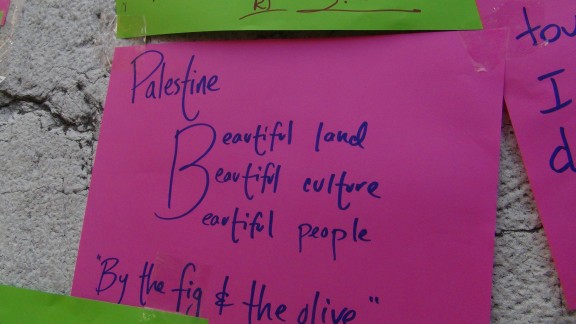 Palestine
Beautiful land
Beautiful culture
Beautiful people
"By the fig & the olive"
tou
I
d